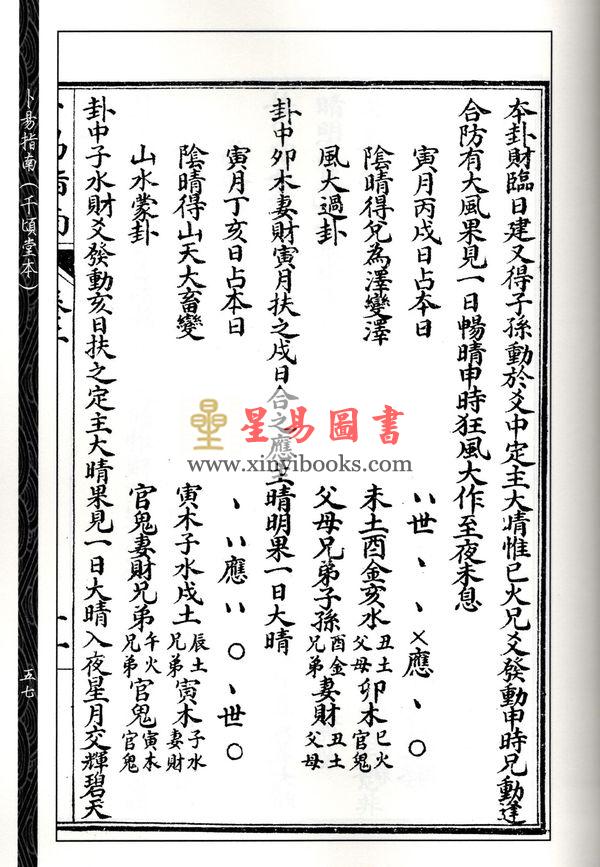 本卦財臨日建又得子孫動於爻中定主大晴惟巳火兄爻發動申時兄動逢
合防有大風果見一日暢晴申時狂風大作至夜未息
寅月丙戌日占本日
、、世、、×應、○
陰晴得兌為澤變澤
未土酉金亥水丑土父母卯木巳火官鬼
風大過卦
父母兄弟子孫酉金兄弟妻財丑土父母
卦中卯木妻財寅月扶之戌日合之應主晴明果一日大晴
寅月丁亥日占本日
、、、應、、○、世○
陰晴得山天大畜變
寅木子水戌土辰土兄弟寅木子水妻財
山水蒙卦
官鬼妻財兄弟午火兄弟官鬼寅木官鬼
卦中子水財爻發動亥日扶之定主大晴果見一日大晴入夜星月交輝碧天
卜易指南（千頃堂本）
五七
星易圖書
www.xinyibooks.com